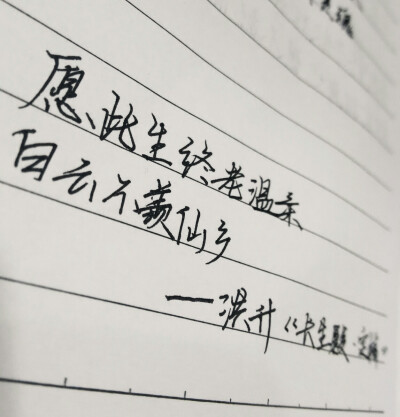 愿此生终老温柔
白云不羡仙乡
——洪升《长生殿·定情》